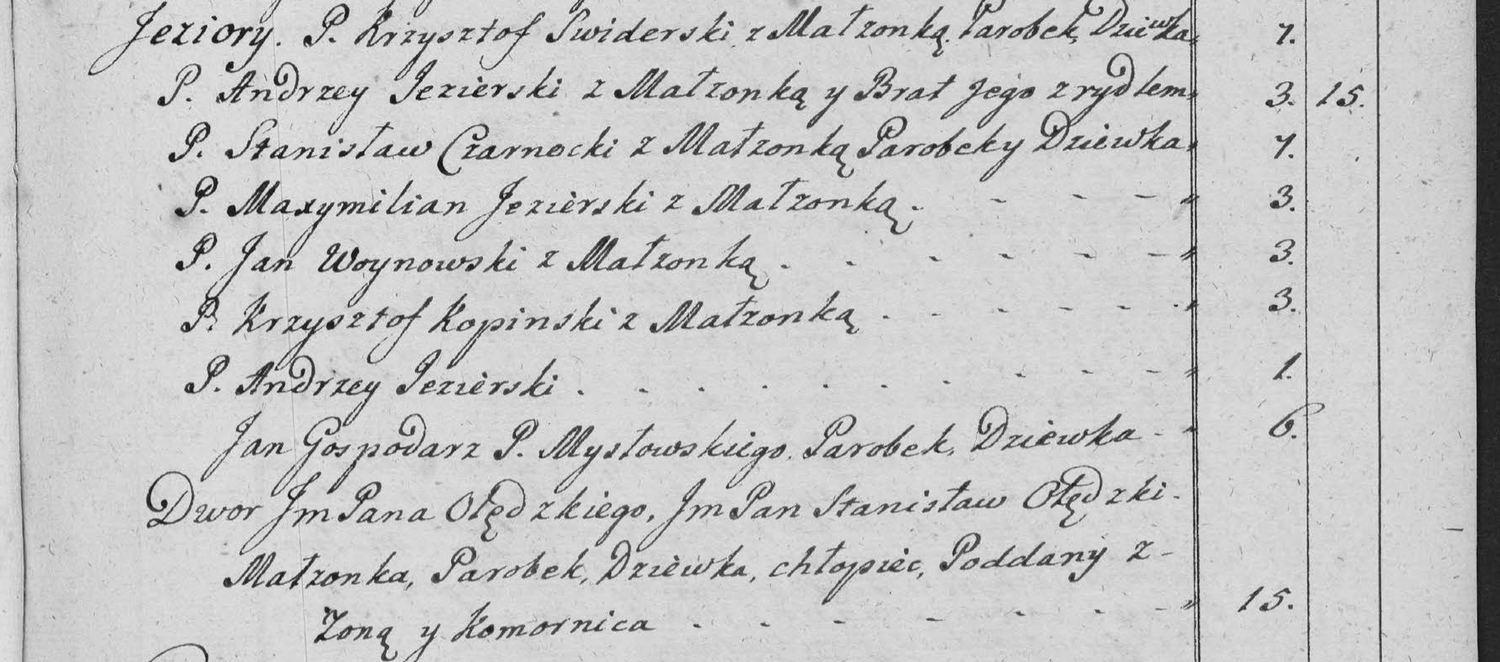 Jeziory. P. Krzysztof Swiderski z Małzonką, Parobek, Dziewka 7.
P. Andrzey Jezierski z Małzonką y Brat jego z rydlem 3. 15.
P. Stanisław Czarnocki z Małzonką Parobek y Dziewka 7.
P. Maxymilian Jezierski z Małzonką. - - - - " 3.
P. Jan Woynowski z Małzonką. - - - - - " 3.
P. Krzysztof Kopinski z Małzonką. - - - - " 3.
P. Andrzey Jezierski. - - - - - - - - " 1.
Jan Gospodarz P. Mysłowskiego. Parobek, Dziewka - " 6.
Dwor Jm Pana Ołędzkiego, Jm Pan Stanisław Ołędzki -
Małzonka, Parobek, Dziewka, chłopiec, Poddany z -
Zoną y Komornica - - - - - - " 15.